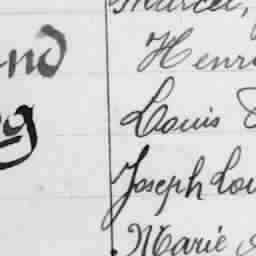 Marcel,
nd
Henri
Louis
Joseph Lou
Marie